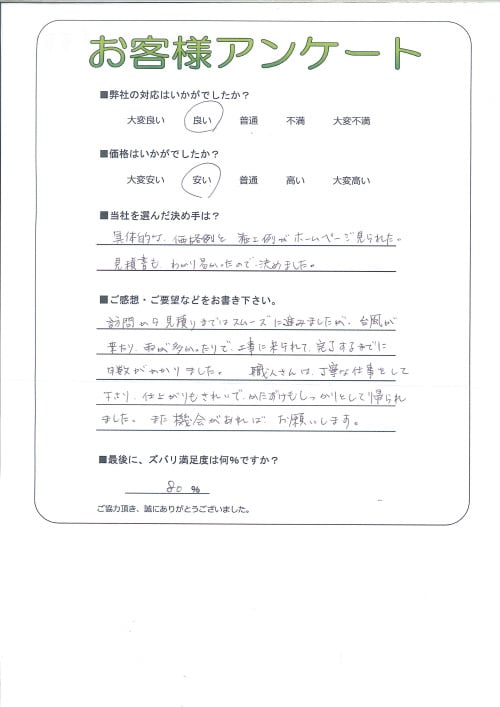 お客様アンケート
■弊社の対応はいかがでしたか？
大変良い 良い 普通 不満 大変不満
■価格はいかがでしたか？
大変安い 安い 普通 高い 大変高い
■当社を選んだ決め手は？
具体的な、価格例と施工例がホームページ見られた。
見積書も、わかり易かったので決めました。
■ご感想・ご要望などをお書き下さい。
訪問から見積りまではスムーズに進みましたが、台風が
来たり、雨が多かったりで、工事に来られて、完了するまでに
日数がかかりました。 職人さんは、丁寧な仕事をして
下さり、仕上がりもきれいで、かたずけもしっかりとして帰られ
ました。また機会があれば、お願いします。
■最後に、ズバリ満足度は何％ですか？
80 ％
ご協力頂き、誠にありがとうございました。